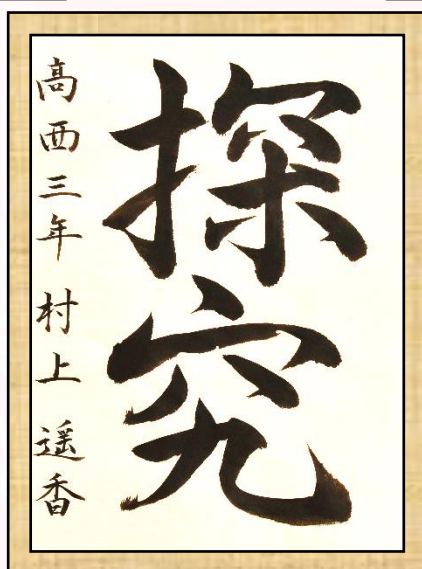 探究
高西三年 村上 遥香